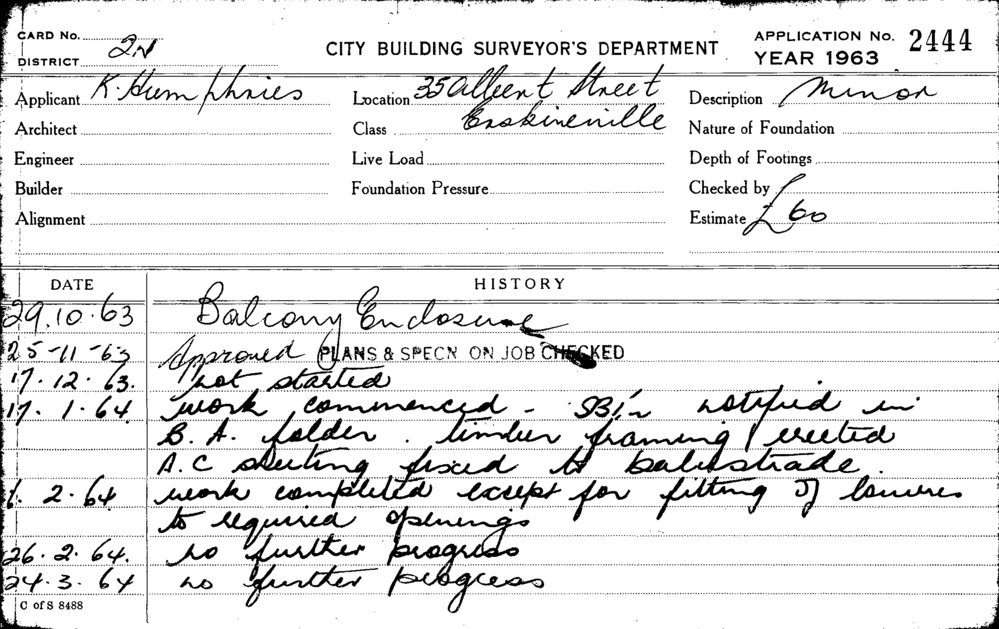 CARD No.
DISTRICT 2N
CITY BUILDING SURVEYOR'S DEPARTMENT
APPLICATION No. 2444
YEAR 1963
Applicant K. Humphries
Location 35 Albert Street
Description Minor
Architect
Class Erskineville
Nature of Foundation
Engineer
Live Load
Depth of Footings
Builder
Foundation Pressure
Checked by
Alignment
Estimate £60
DATE HISTORY
29.10.63 Balcony Enclosure
25-11-63 Approved PLANS & SPECN ON JOB CHECKED
17.12.63. not started
17.1.64 work commenced - notified in
B.A. folder. timber framing erected
A.C sheeting fixed to balustrade.
2.64 work completed except for fitting of louvres
to required openings
26.2.64. no further progress
24.3.64 no further progress
C of S 8488